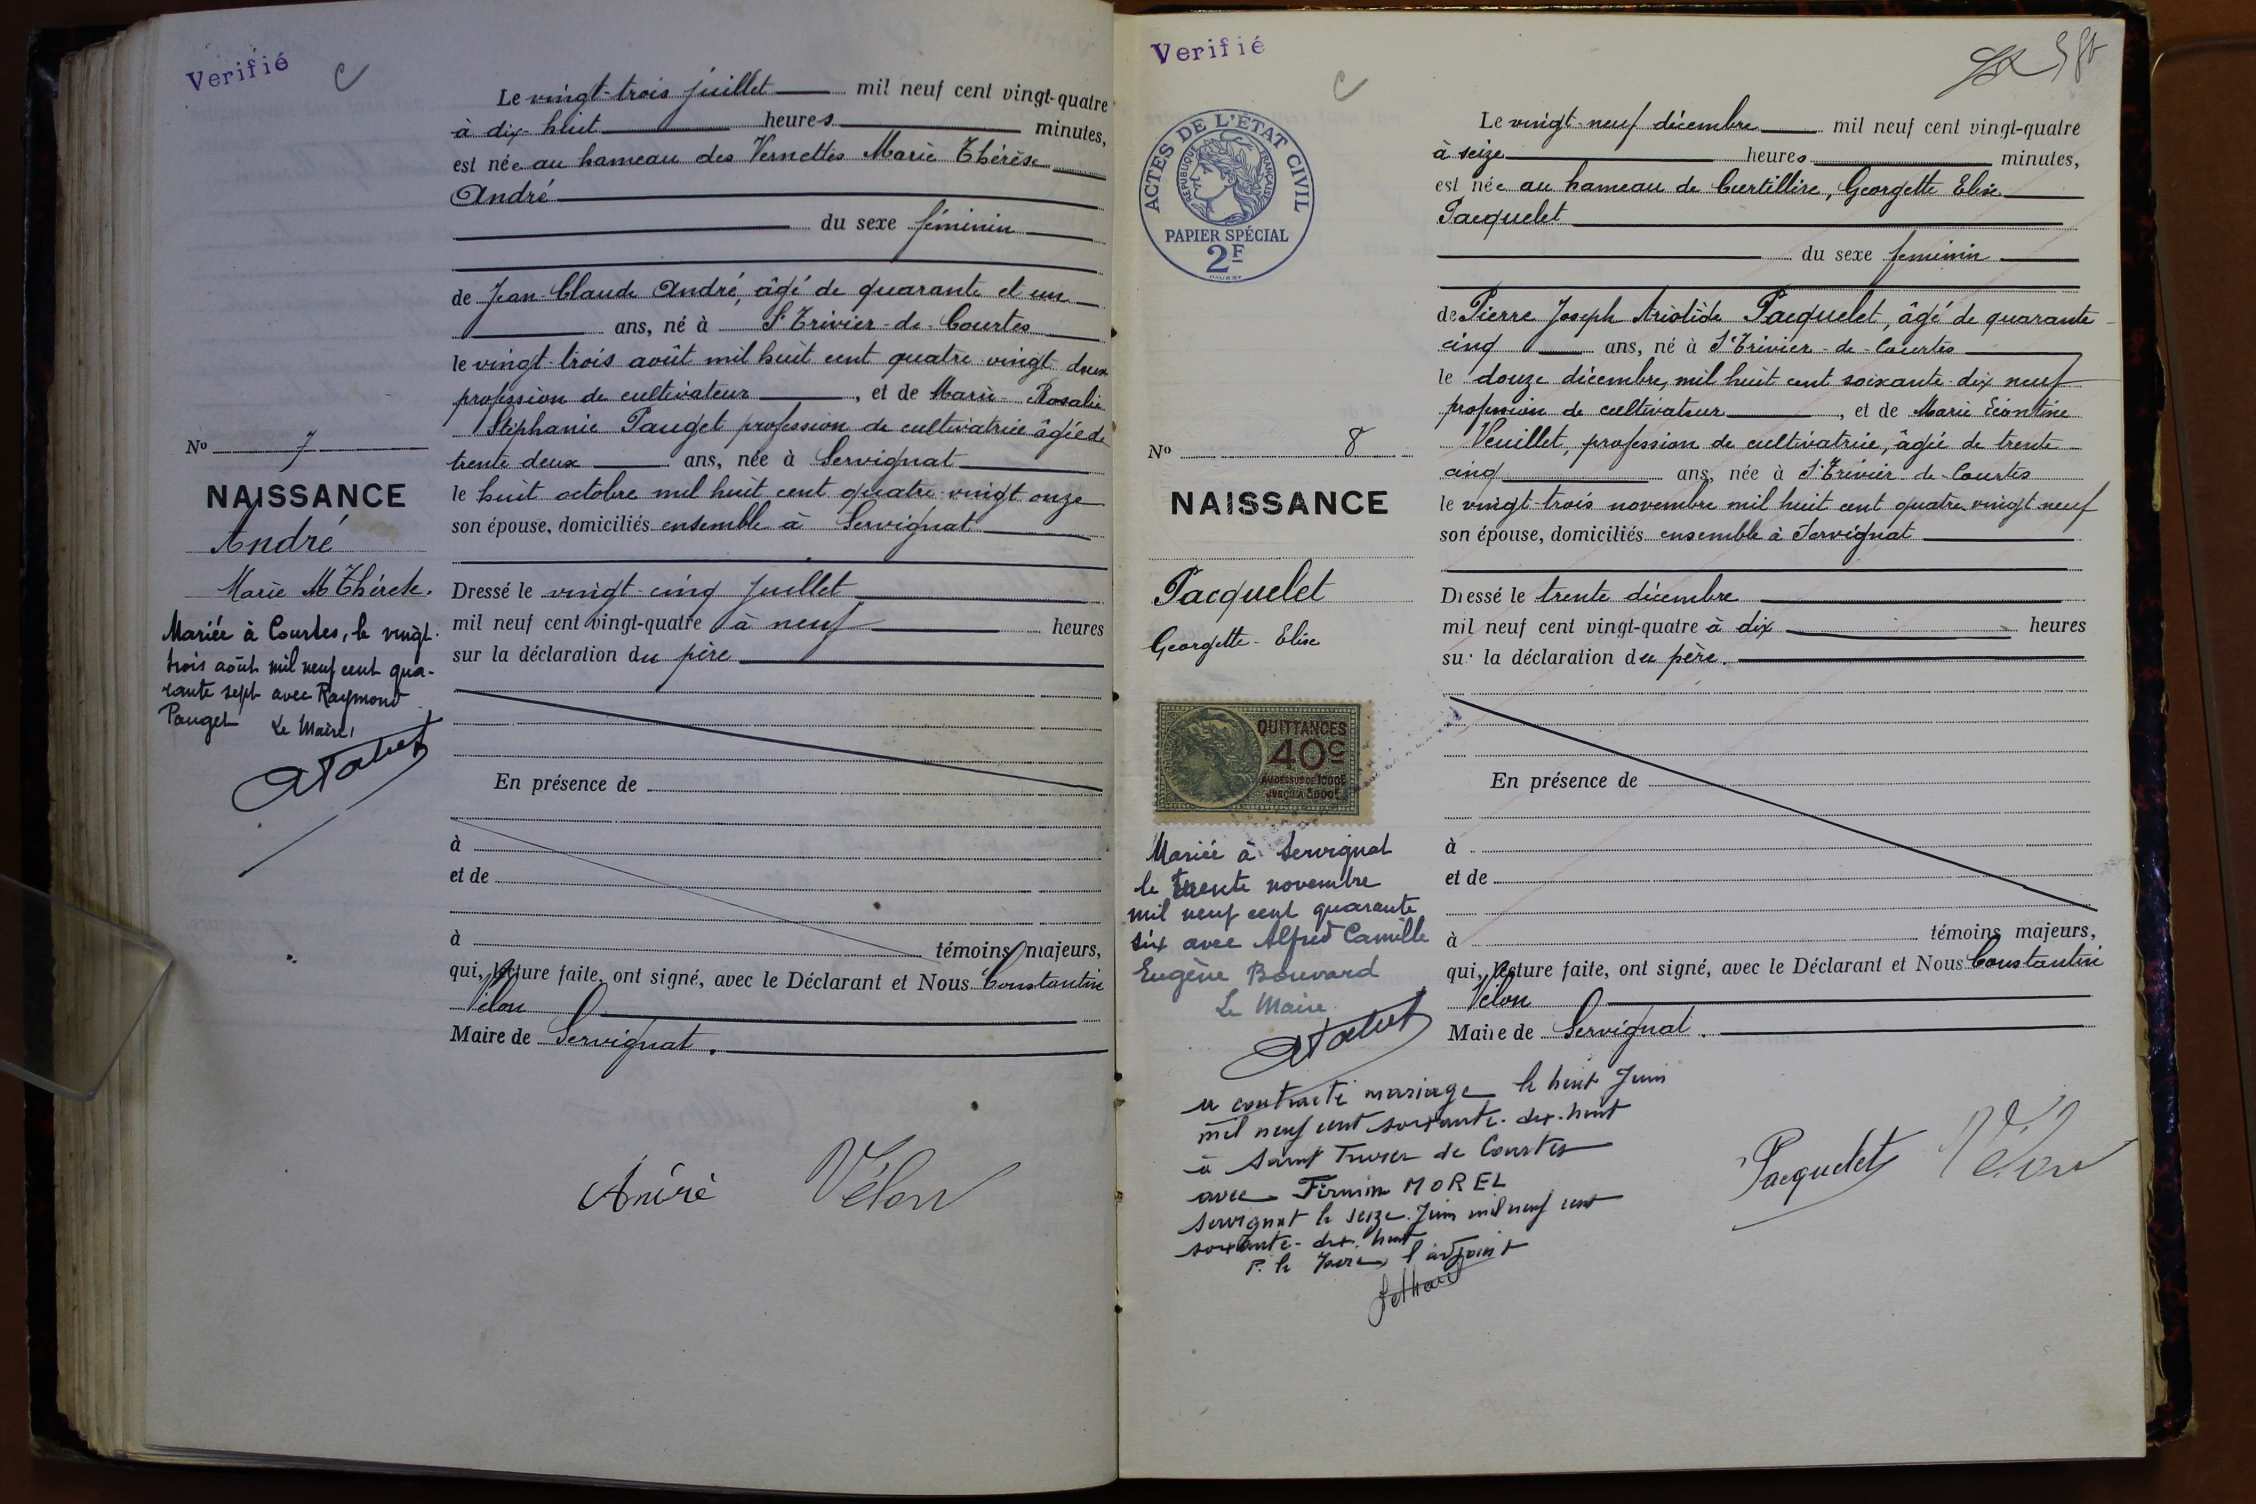 Verifié
Le vingt-trois juillet mil neuf cent vingt-quatre
à dix-huit heures minutes,
est née au hameau des Vernettes Marie Thérèse
André
du sexe féminin
de Jean-Claude André, âgé de quarante et un
ans, né à St Trivier-de-Courtes
le vingt-trois août mil huit cent quatre-vingt deux
profession de cultivateur, et de Marie-Rosalie
Stéphanie Pauget profession de cultivatrice âgée de
trente deux ans, née à Servignat
le huit octobre mil huit cent quatre-vingt onze
son épouse, domiciliés ensemble à Servignat
Dressé le vingt-cinq juillet
mil neuf cent vingt-quatre à neuf heures
sur la déclaration du père
En présence de
à
et de
à témoins majeurs,
qui, lecture faite, ont signé, avec le Déclarant et Nous Constantin
Vélon
Maire de Servignat.
André Vélon
No 7
NAISSANCE
André
Marie Thérèse.
Mariée à Courtes, le vingt-
trois août mil neuf cent qua-
rante sept avec Raymond
Pauget Le Maire,
Verifié
ACTES DE L'ÉTAT CIVIL
RÉPUBLIQUE FRANÇAISE
PAPIER SPÉCIAL
2F
No 8
NAISSANCE
Pacquelet
Georgette-Elise
QUITTANCES
40c
AU DESSUS DE 1000F
JUSQU'A 3000F
Mariée à Servignat
le trente novembre
mil neuf cent quarante
six avec Alfred Camille
Eugène Bouvard
Le Maire
a contracté mariage le huit Juin
mil neuf cent soixante-dix-huit
à Saint Trivier de Courtes
avec Firmin MOREL
Servignat le seize Juin mil neuf cent
soixante-dix-huit
P. le Maire, l'adjoint
Le vingt-neuf décembre mil neuf cent vingt-quatre
à seize heures minutes,
est née au hameau de Curtillire, Georgette Elise
Pacquelet
du sexe feminin
de Pierre Joseph Aristide Pacquelet, âgé de quarante
cinq ans, né à St Trivier-de-Courtes
le douze décembre, mil huit cent soixante-dix neuf
profession de cultivateur, et de Marie Léontine
Veuillet, profession de cultivatrice, âgée de trente
cinq ans, née à St Trivier-de-Courtes
le vingt-trois novembre mil huit cent quatre vingt neuf
son épouse, domiciliés ensemble à Servignat
Dressé le trente décembre
mil neuf cent vingt-quatre à dix heures
sur la déclaration du père.
En présence de
à
et de
à témoins majeurs,
qui, lecture faite, ont signé, avec le Déclarant et Nous Constantin
Vélon
Maire de Servignat.
Pacquelet Vélon